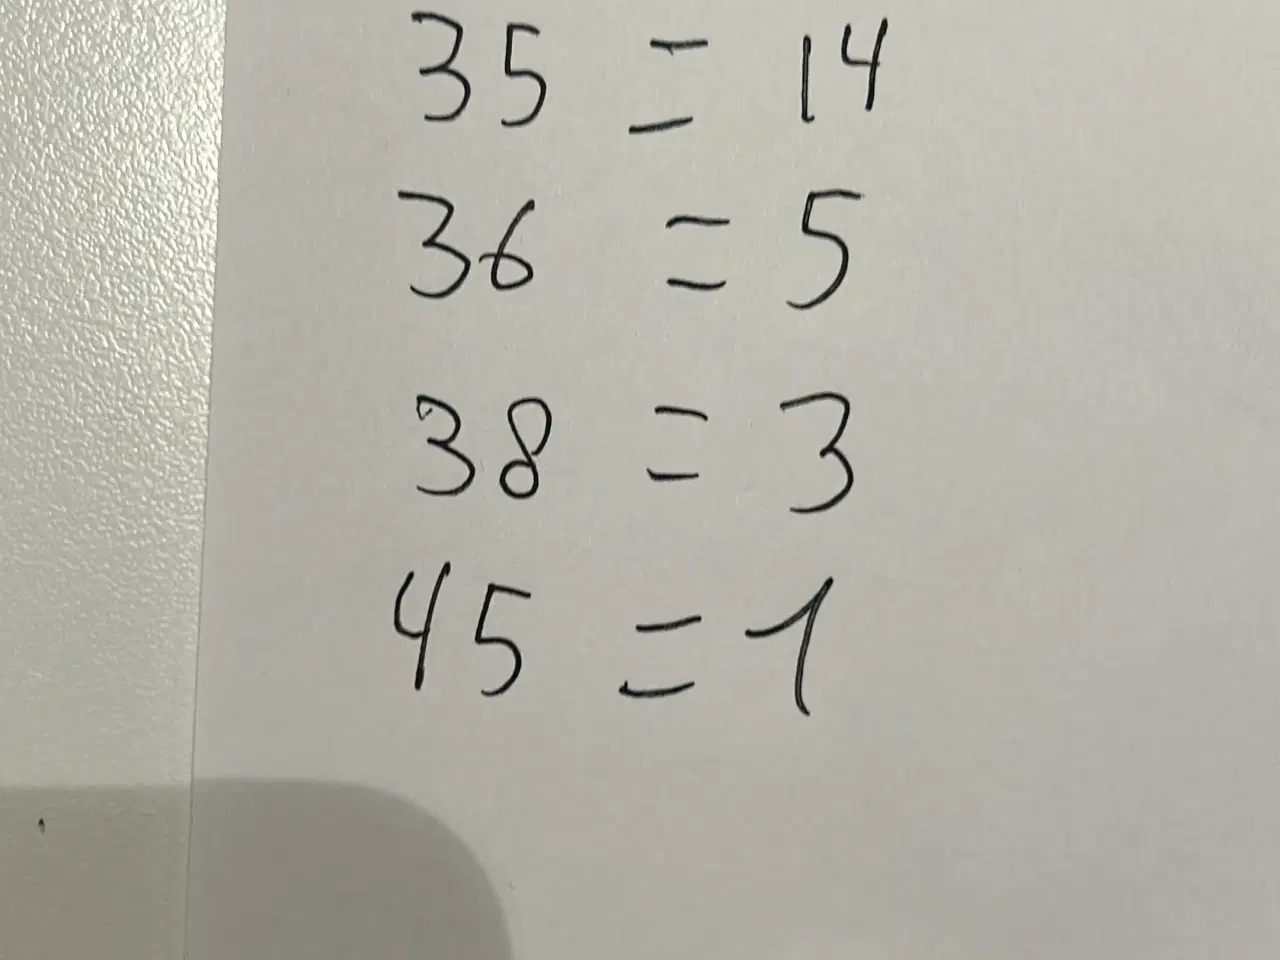 35 = 14
36 = 5
38 = 3
45 = 1